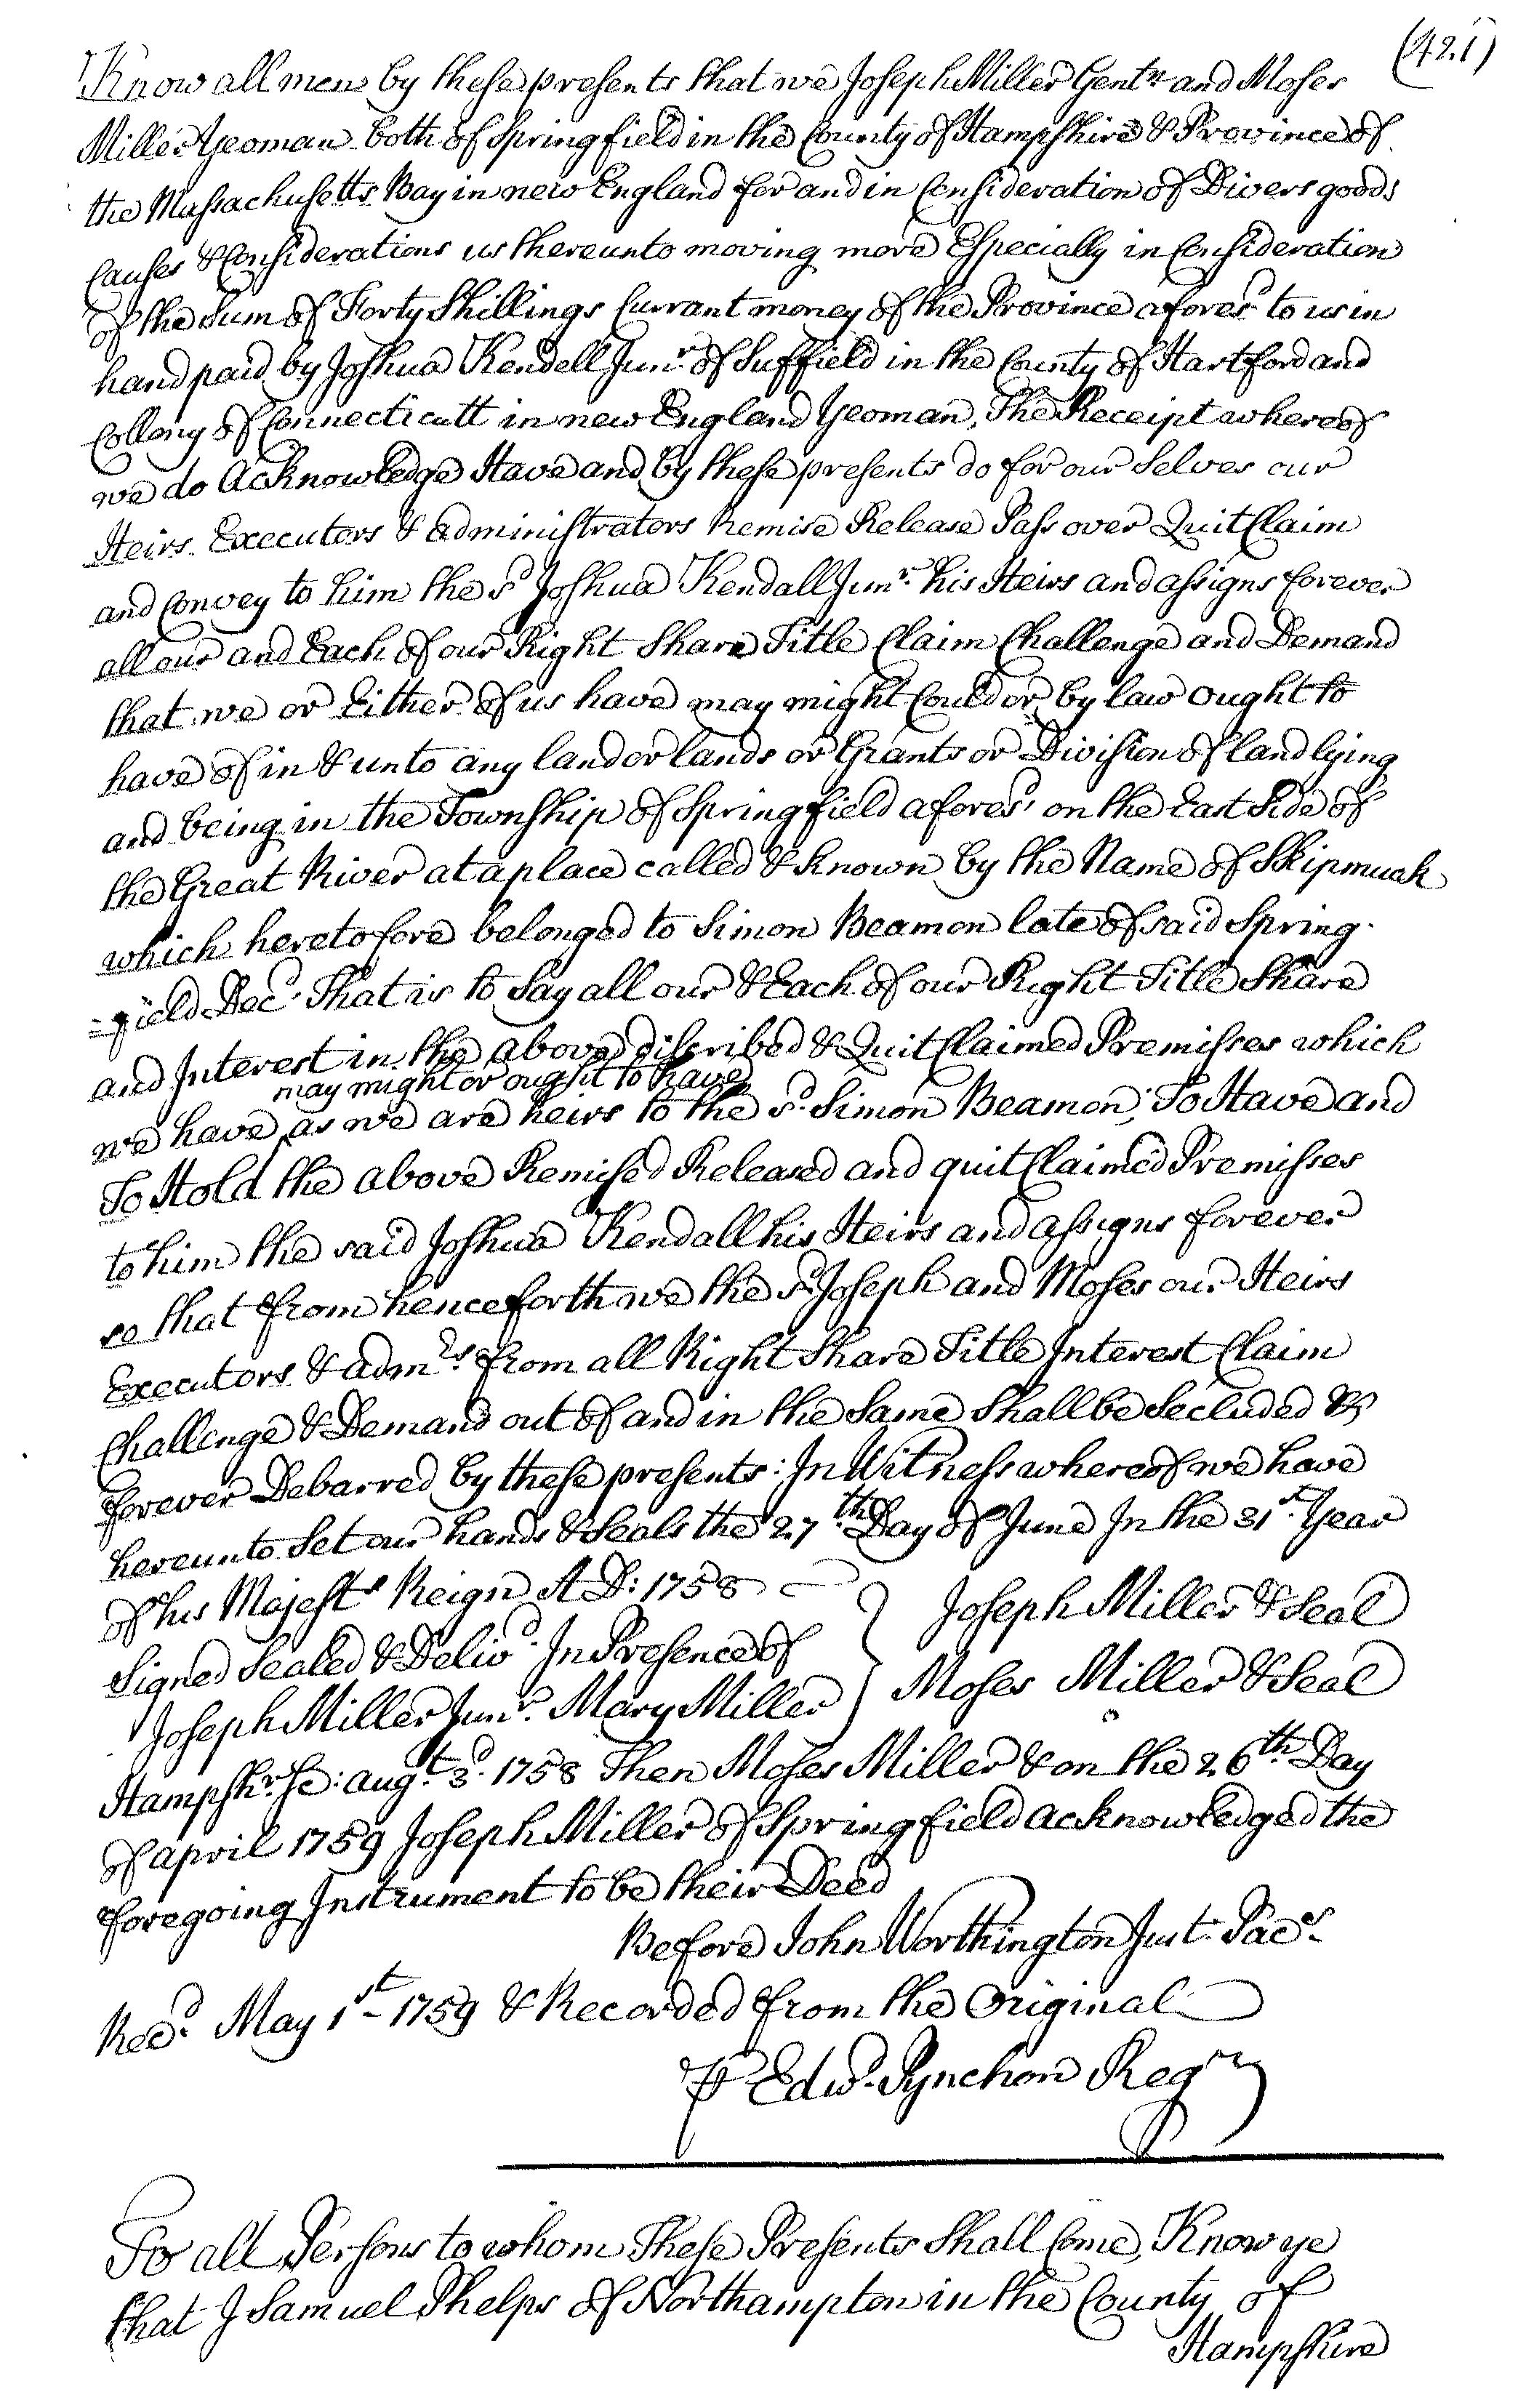 (421)
Know all men by these presents that we Joseph Miller Gentn and Moses
Miller Yeoman both of Springfield in the County of Hampshire & Province of
the Massachusetts Bay in new England for and in Consideration of Divers goods
Causes & Considerations us thereunto moving more Especially in Consideration
of the Sum of Forty Shillings Currant money of the Province afores.d to us in
hand paid by Joshua Kendell Junr. of Suffield in the County of Hartford and
Collony of Connecticutt in new England Yeoman, The Receipt whereof
we do Acknowledge Have and by these presents do for our Selves our
Heirs Executors & administrators Remise Release Pass over Quit Claim
and Convey to him the sd Joshua Kendall Junr. his Heirs and assigns forever
all our and Each of our Right Share Title Claim Challenge and Demand
that we or Either of us have may might Could or by law ought to
have of in & unto any land or lands or Grants or Division of land lying
and being in the Township of Springfield afores.d on the East Side of
the Great River at a place called & known by the Name of Skipmuck
which heretofore belonged to Simon Beamon late of said Spring-
=field Decd. That is to Say all our & Each of our Right Title Share
and Interest in the above discribed & Quit Claimed Premisses which
may might or ought to have
we have ^ as we are heirs to the sd. Simon Beamon; To Have and
To Hold the above Remised Released and quit Claimed Premisses
to him the said Joshua Kendall his Heirs and assigns forever
so that from henceforth we the sd. Joseph and Moses our Heirs
Executors & admrs. from all Right Share Title Interest Claim
Challenge & Demand out of and in the Same Shall be Secluded &
forever Debarred by these presents: In Witness whereof we have
hereunto Set our hands & Seals the 27th. Day of June In the 31st. Year
of his Majests Reign A D: 1758
Signed Sealed & Delivd. In Presence of } Joseph Miller & Seal
Joseph Miller Junr. Mary Miller } Moses Miller & Seal
Hampshr. sc: augt. 3d. 1758 Then Moses Miller & on the 26th. Day
of april 1759 Joseph Miller of Springfield acknowledged the
foregoing Instrument to be their Deed
Before John Worthington Just. Pacs.
Recd. May 1st - 1759 & Recorded from the Original
P Edwd. Pynchon Regr
To all Persons to whom These Presents Shall Come, Know ye
that I Samuel Phelps of Northampton in the County of
Hampshire